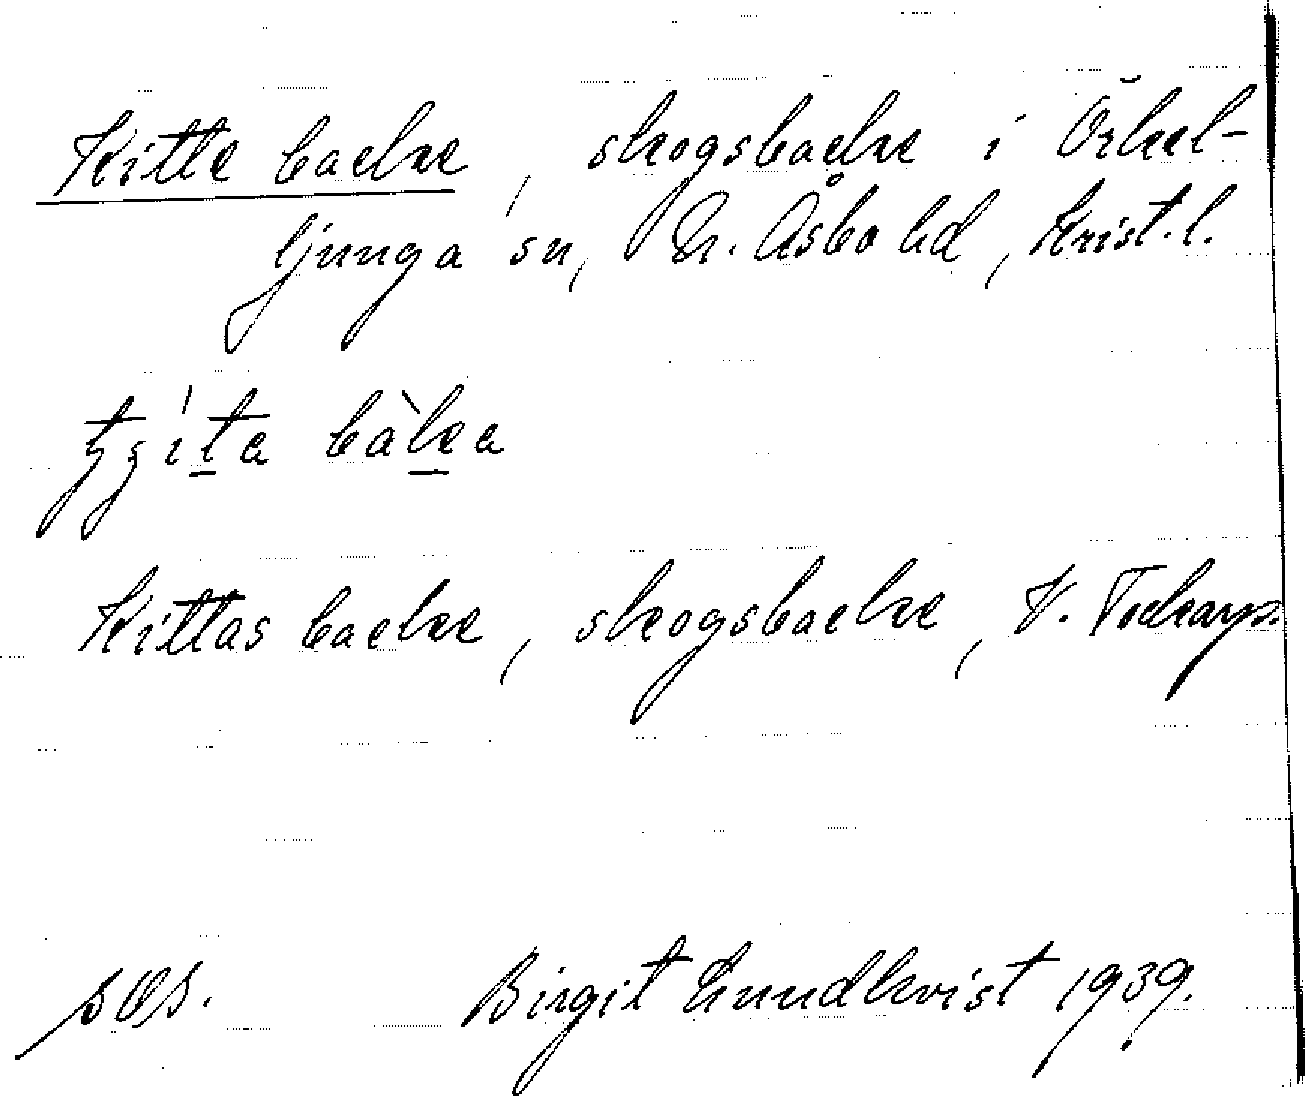 Kitte backe, skogsbacke i Örkel-
ljunga sn, N. Åsbo hd, Krist. l.
Kittas backe, skogsbacke, V. Tockarp.
sds. Birgit Lundkvist 1939.